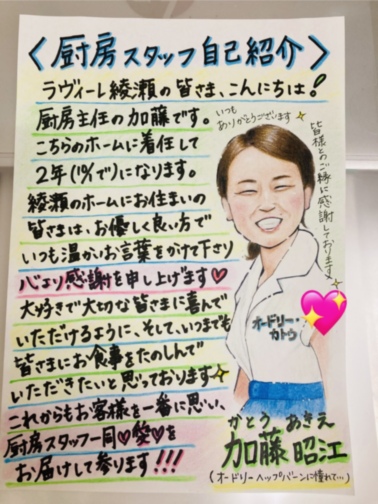 ＜厨房スタッフ自己紹介＞
ラヴィーレ綾瀬の皆さま、こんにちは！
厨房主任の加藤です。
こちらのホームに着任して
2年(10/1で)になります。
綾瀬のホームにお住まいの
皆さまは、お優しく良い方で
いつも温かいお言葉をかけて下さり
心より感謝を申し上げます♡
大好きで大切な皆さまに喜んで
いただけるように、そして、いつまでも
皆さまにお食事をたのしんで
いただきたいと思っております
これからもお客様を一番に思い、
厨房スタッフ一同♡愛♡を
お届けして参ります!!!
いつも
ありがとうございます
皆様とのご縁に感謝しております
オードリー・
カトウ
かとう あきえ
加藤 昭江
(オードリーヘップバーンに憧れて…)